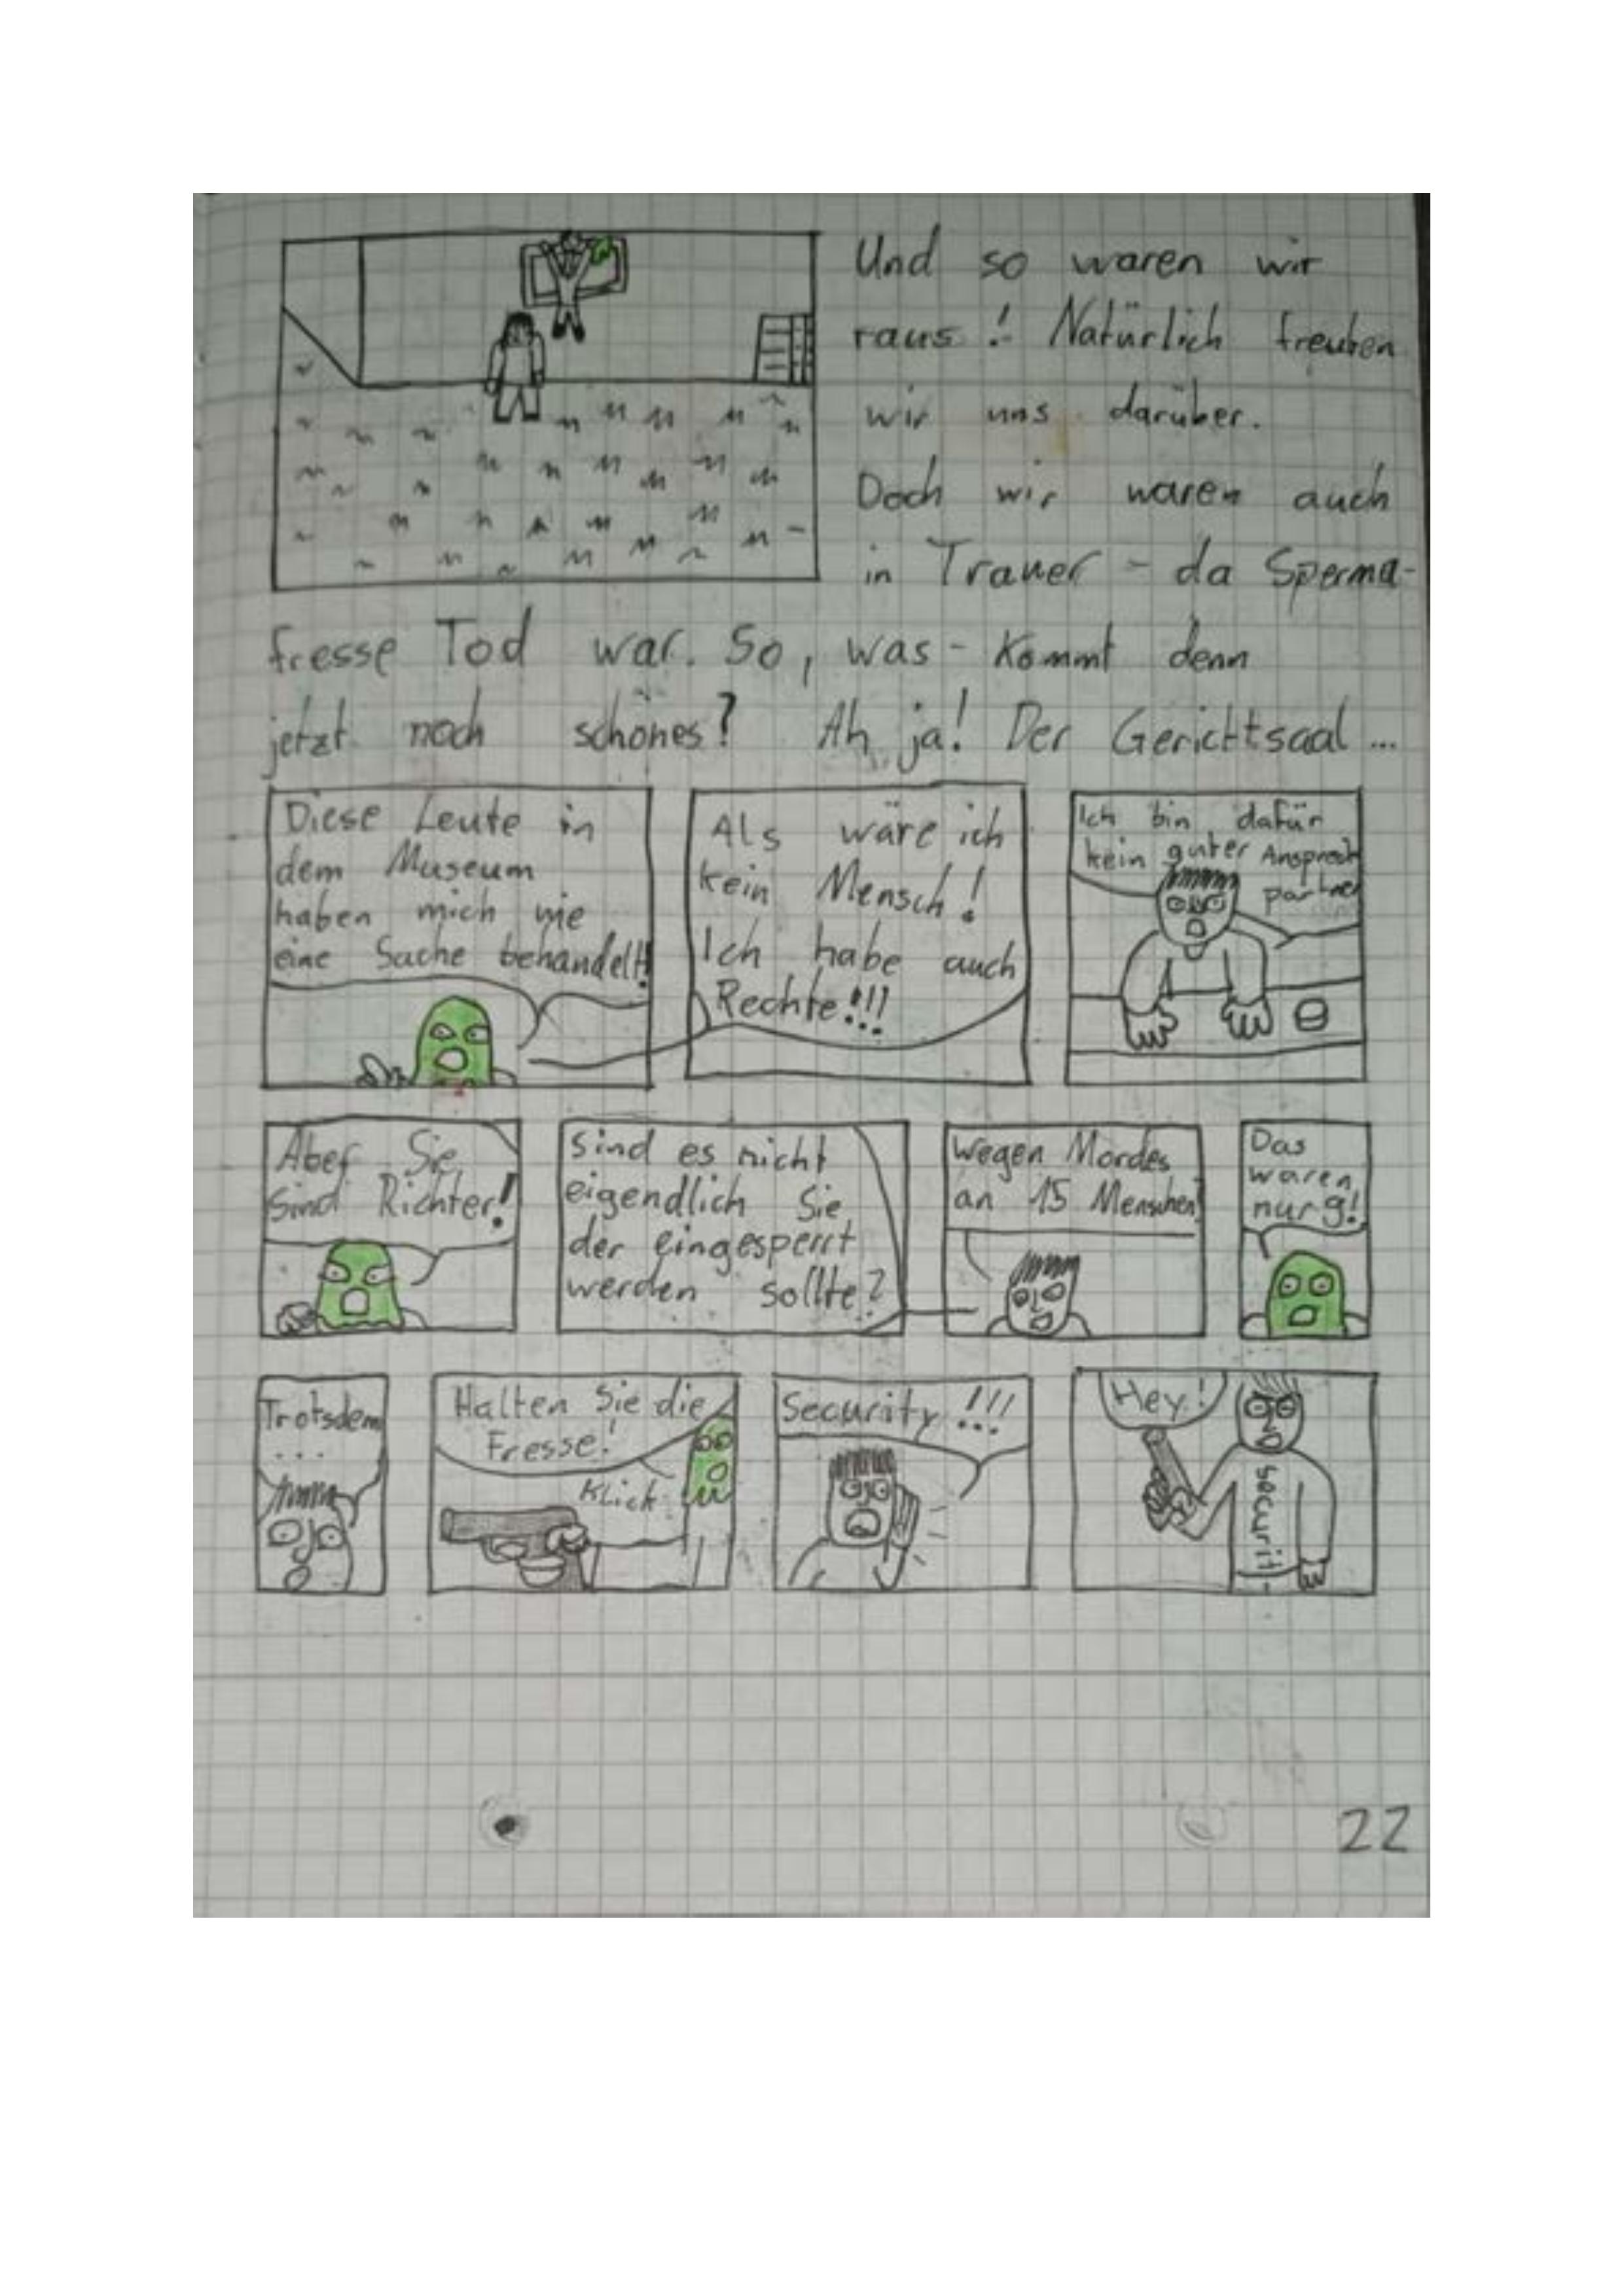 Und so waren wir
raus! Natürlich freuten
wir uns darüber.
Doch wir waren auch
in Trauer - da Sperma-
fresse Tod war. So, was - kommt denn
jetzt noch schönes? Ah ja! Der Gerichtsaal...
Diese Leute in
dem Museum
haben mich wie
eine Sache behandelt!
Als wäre ich
kein Mensch!
Ich habe auch
Rechte!!!
Ich bin dafür
kein guter Ansprech
partner
Aber Sie
sind Richter!
Sind es nicht
eigendlich Sie
der eingesperrt
werden sollte?
Wegen Mordes
an 15 Menschen!
Das
waren
nur 9!
Trotsdem
...
Halten Sie die
Fresse!
Klick
Security!!!
Hey!
securit
22